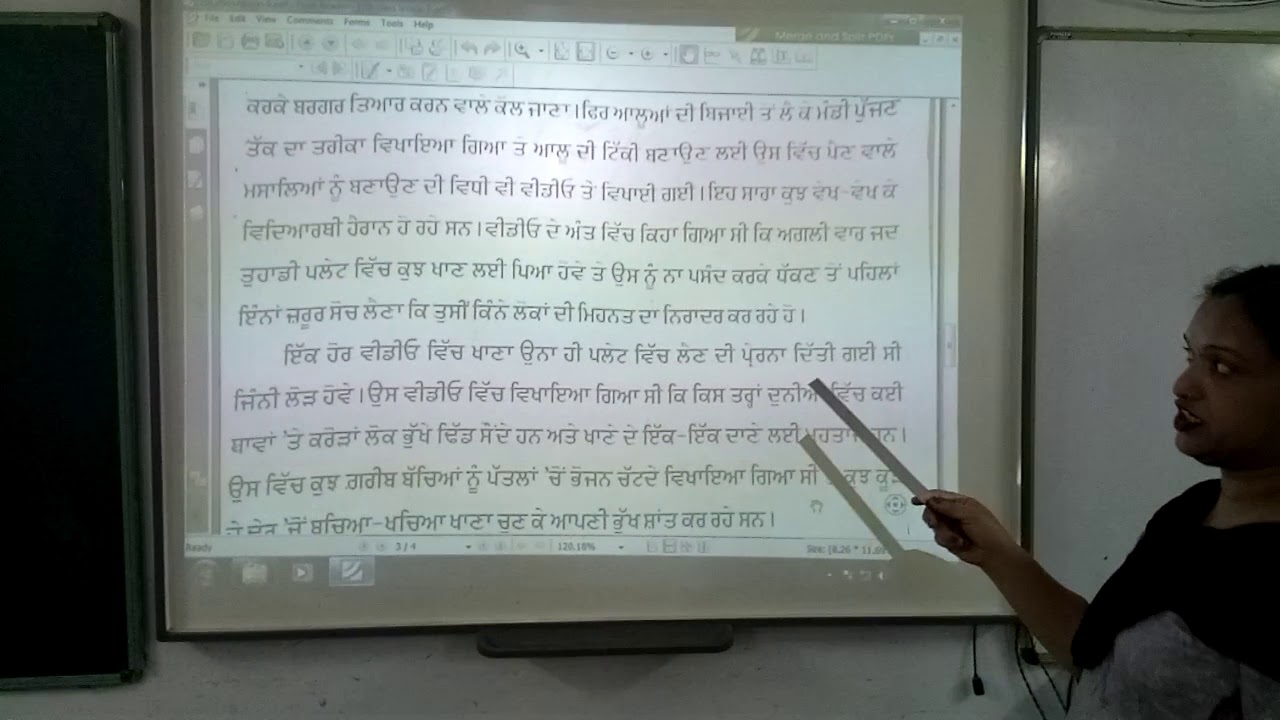 File Edit View Comments Forms Tools Help
Merge and Split PDFs
ਕਰਕੇ ਬਰਗਰ ਤਿਆਰ ਕਰਨ ਵਾਲੇ ਕੋਲ ਜਾਣਾ। ਫਿਰ ਆਲੂਆਂ ਦੀ ਬਿਜਾਈ ਤੋਂ ਲੈ ਕੇ ਮੰਡੀ ਪੁੱਜਣ
ਤੱਕ ਦਾ ਤਰੀਕਾ ਵਿਖਾਇਆ ਗਿਆ ਤੇ ਆਲੂ ਦੀ ਟਿੱਕੀ ਬਣਾਉਣ ਲਈ ਉਸ ਵਿੱਚ ਪੈਣ ਵਾਲੇ
ਮਸਾਲਿਆਂ ਨੂੰ ਬਣਾਉਣ ਦੀ ਵਿਧੀ ਵੀ ਵੀਡੀਓ ਤੇ ਵਿਖਾਈ ਗਈ। ਇਹ ਸਾਹਾ ਕੁਝ ਵੇਖ-ਵੇਖ ਕੇ
ਵਿਦਿਆਰਥੀ ਹੈਰਾਨ ਹੋ ਰਹੇ ਸਨ। ਵੀਡੀਓ ਦੇ ਅੰਤ ਵਿੱਚ ਕਿਹਾ ਗਿਆ ਸੀ ਕਿ ਅਗਲੀ ਵਾਰ ਜਦ
ਤੁਹਾਡੀ ਪਲੇਟ ਵਿੱਚ ਕੁਝ ਖਾਣ ਲਈ ਪਿਆ ਹੋਵੇ ਤੇ ਉਸ ਨੂੰ ਨਾ ਪਸੰਦ ਕਰਕੇ ਧੱਕਣ ਤੋਂ ਪਹਿਲਾਂ
ਇੰਨਾਂ ਜ਼ਰੂਰ ਸੋਚ ਲੈਣਾ ਕਿ ਤੁਸੀਂ ਕਿੰਨੇ ਲੋਕਾਂ ਦੀ ਮਿਹਨਤ ਦਾ ਨਿਰਾਦਰ ਕਰ ਰਹੇ ਹੋ।
ਇੱਕ ਹੋਰ ਵੀਡੀਓ ਵਿੱਚ ਖਾਣਾ ਉਨਾ ਹੀ ਪਲੇਟ ਵਿੱਚ ਲੈਣ ਦੀ ਪ੍ਰੇਰਨਾ ਦਿੱਤੀ ਗਈ ਸੀ
ਜਿੰਨੀ ਲੋੜ ਹੋਵੇ। ਉਸ ਵੀਡੀਓ ਵਿੱਚ ਵਿਖਾਇਆ ਗਿਆ ਸੀ ਕਿ ਕਿਸ ਤਰ੍ਹਾਂ ਵਿੱਚ ਕਈ
ਥਾਵਾਂ 'ਤੇ ਕਰੋੜਾਂ ਲੋਕ ਭੁੱਖੇ ਢਿੱਡ ਸੌਂਦੇ ਹਨ ਅਤੇ ਖਾਣੇ ਦੇ ਇੱਕ-ਇੱਕ ਦਾਣੇ ਲਈ
ਉਸ ਵਿੱਚ ਕੁਝ ਗ਼ਰੀਬ ਬੱਚਿਆਂ ਨੂੰ ਪੱਤਲਾਂ 'ਚੋਂ ਭੋਜਨ ਚੱਟਦੇ ਵਿਖਾਇਆ ਗਿਆ ਸੀ ਕੁਝ
ਦੇ ਢੇਰ 'ਚੋਂ ਬਚਿਆ-ਖਚਿਆ ਖਾਣਾ ਚੁਣ ਕੇ ਆਪਣੀ ਭੁੱਖ ਸ਼ਾਂਤ ਕਰ ਰਹੇ ਸਨ।
Ready 3 / 4 120.16% Size: [8.26 *